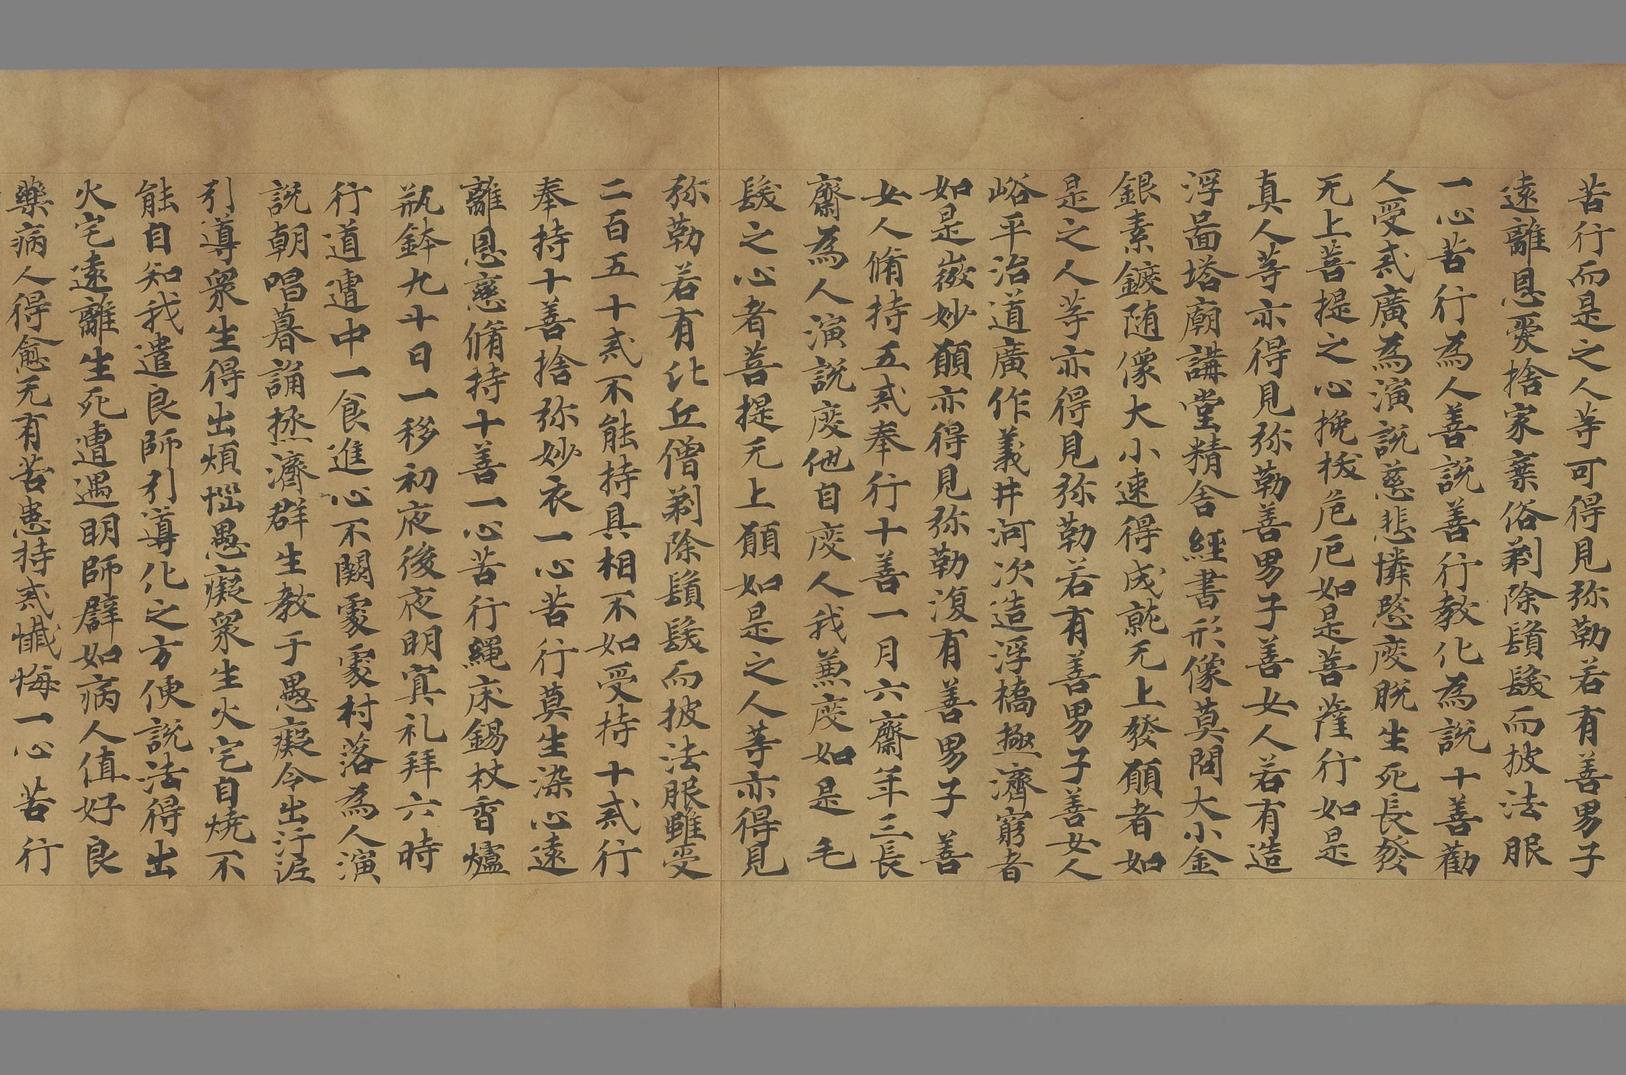 苦行而是之人等可得見弥勒若有善男子
遠離恩愛捨家棄俗剃除鬚髮而披法服
一心苦行為人善說善行教化為說十善勸
人受戒廣為演說慈悲憐愍度脫生死長發
无上菩提之心挽拔危厄如是菩薩行如是
真人等亦得見弥勒善男子善女人若有造
浮啚塔廟講堂精舍經書形像莫問大小金
銀素鍍随像大小速得成就无上發願者如
是之人等亦得見弥勒若有善男子善女人
峪平治道廣作義井河次造浮橋拯濟窮者
如是微妙願亦得見弥勒復有善男子善
女人脩持五戒奉行十善一月六齋年三長
齋為人演說度他自度人我兼度如是毛
髮之心者菩提无上願如是之人等亦得見
弥勒若有比丘僧剃除鬚髮而披法服雖受
二百五十戒不能持具相不如受持十戒行
奉持十善捨弥妙衣一心苦行莫生染心遠
離恩慈脩持十善一心苦行繩床錫杖香爐
瓶鉢九十日一移初夜後夜明寘礼拜六時
行道遭中一食進心不闕處處村落為人演
說朝唱暮誦拯濟群生教于愚癡令出汙泥
引導衆生得出煩惱愚癡衆生火宅自燒不
能自知我遣良師引導化之方便說法得出
火宅遠離生死遭遇明師辟如病人值好良
藥病人得愈无有苦患持戒懺悔一心苦行